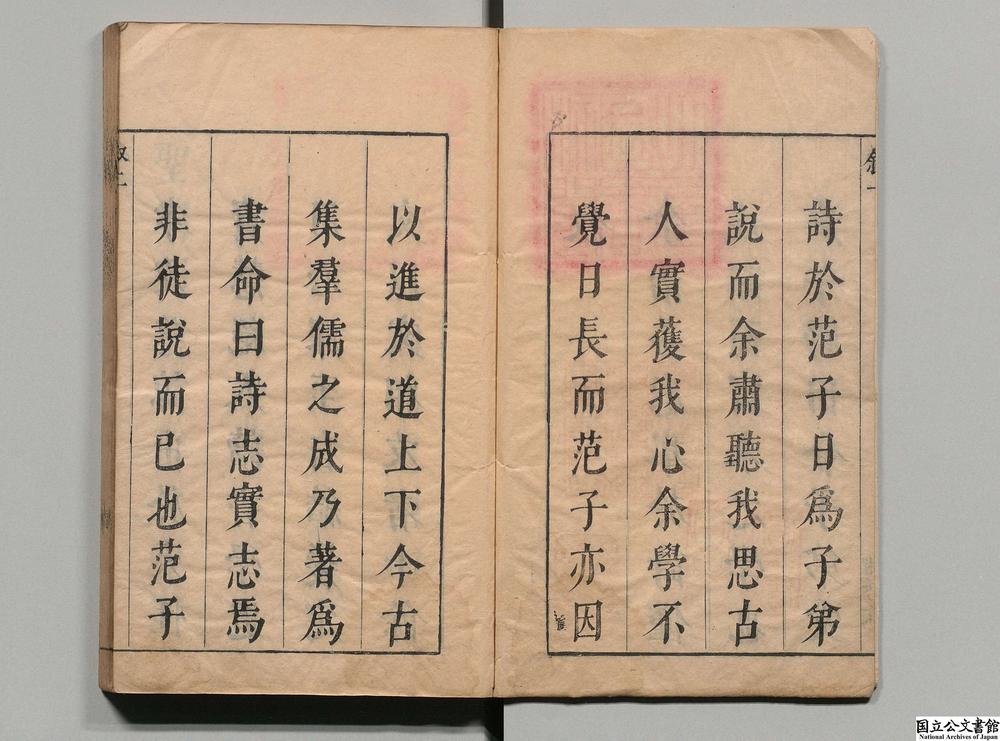 詩於范子日爲子弟
說而余肅聽我思古
人實獲我心余學不
覺日長而范子亦因
以進於道上下今古
集羣儒之成乃著爲
書命曰詩志實志焉
非徒說而已也范子
叙一
叙二
国立公文書館
National Archives of Japan